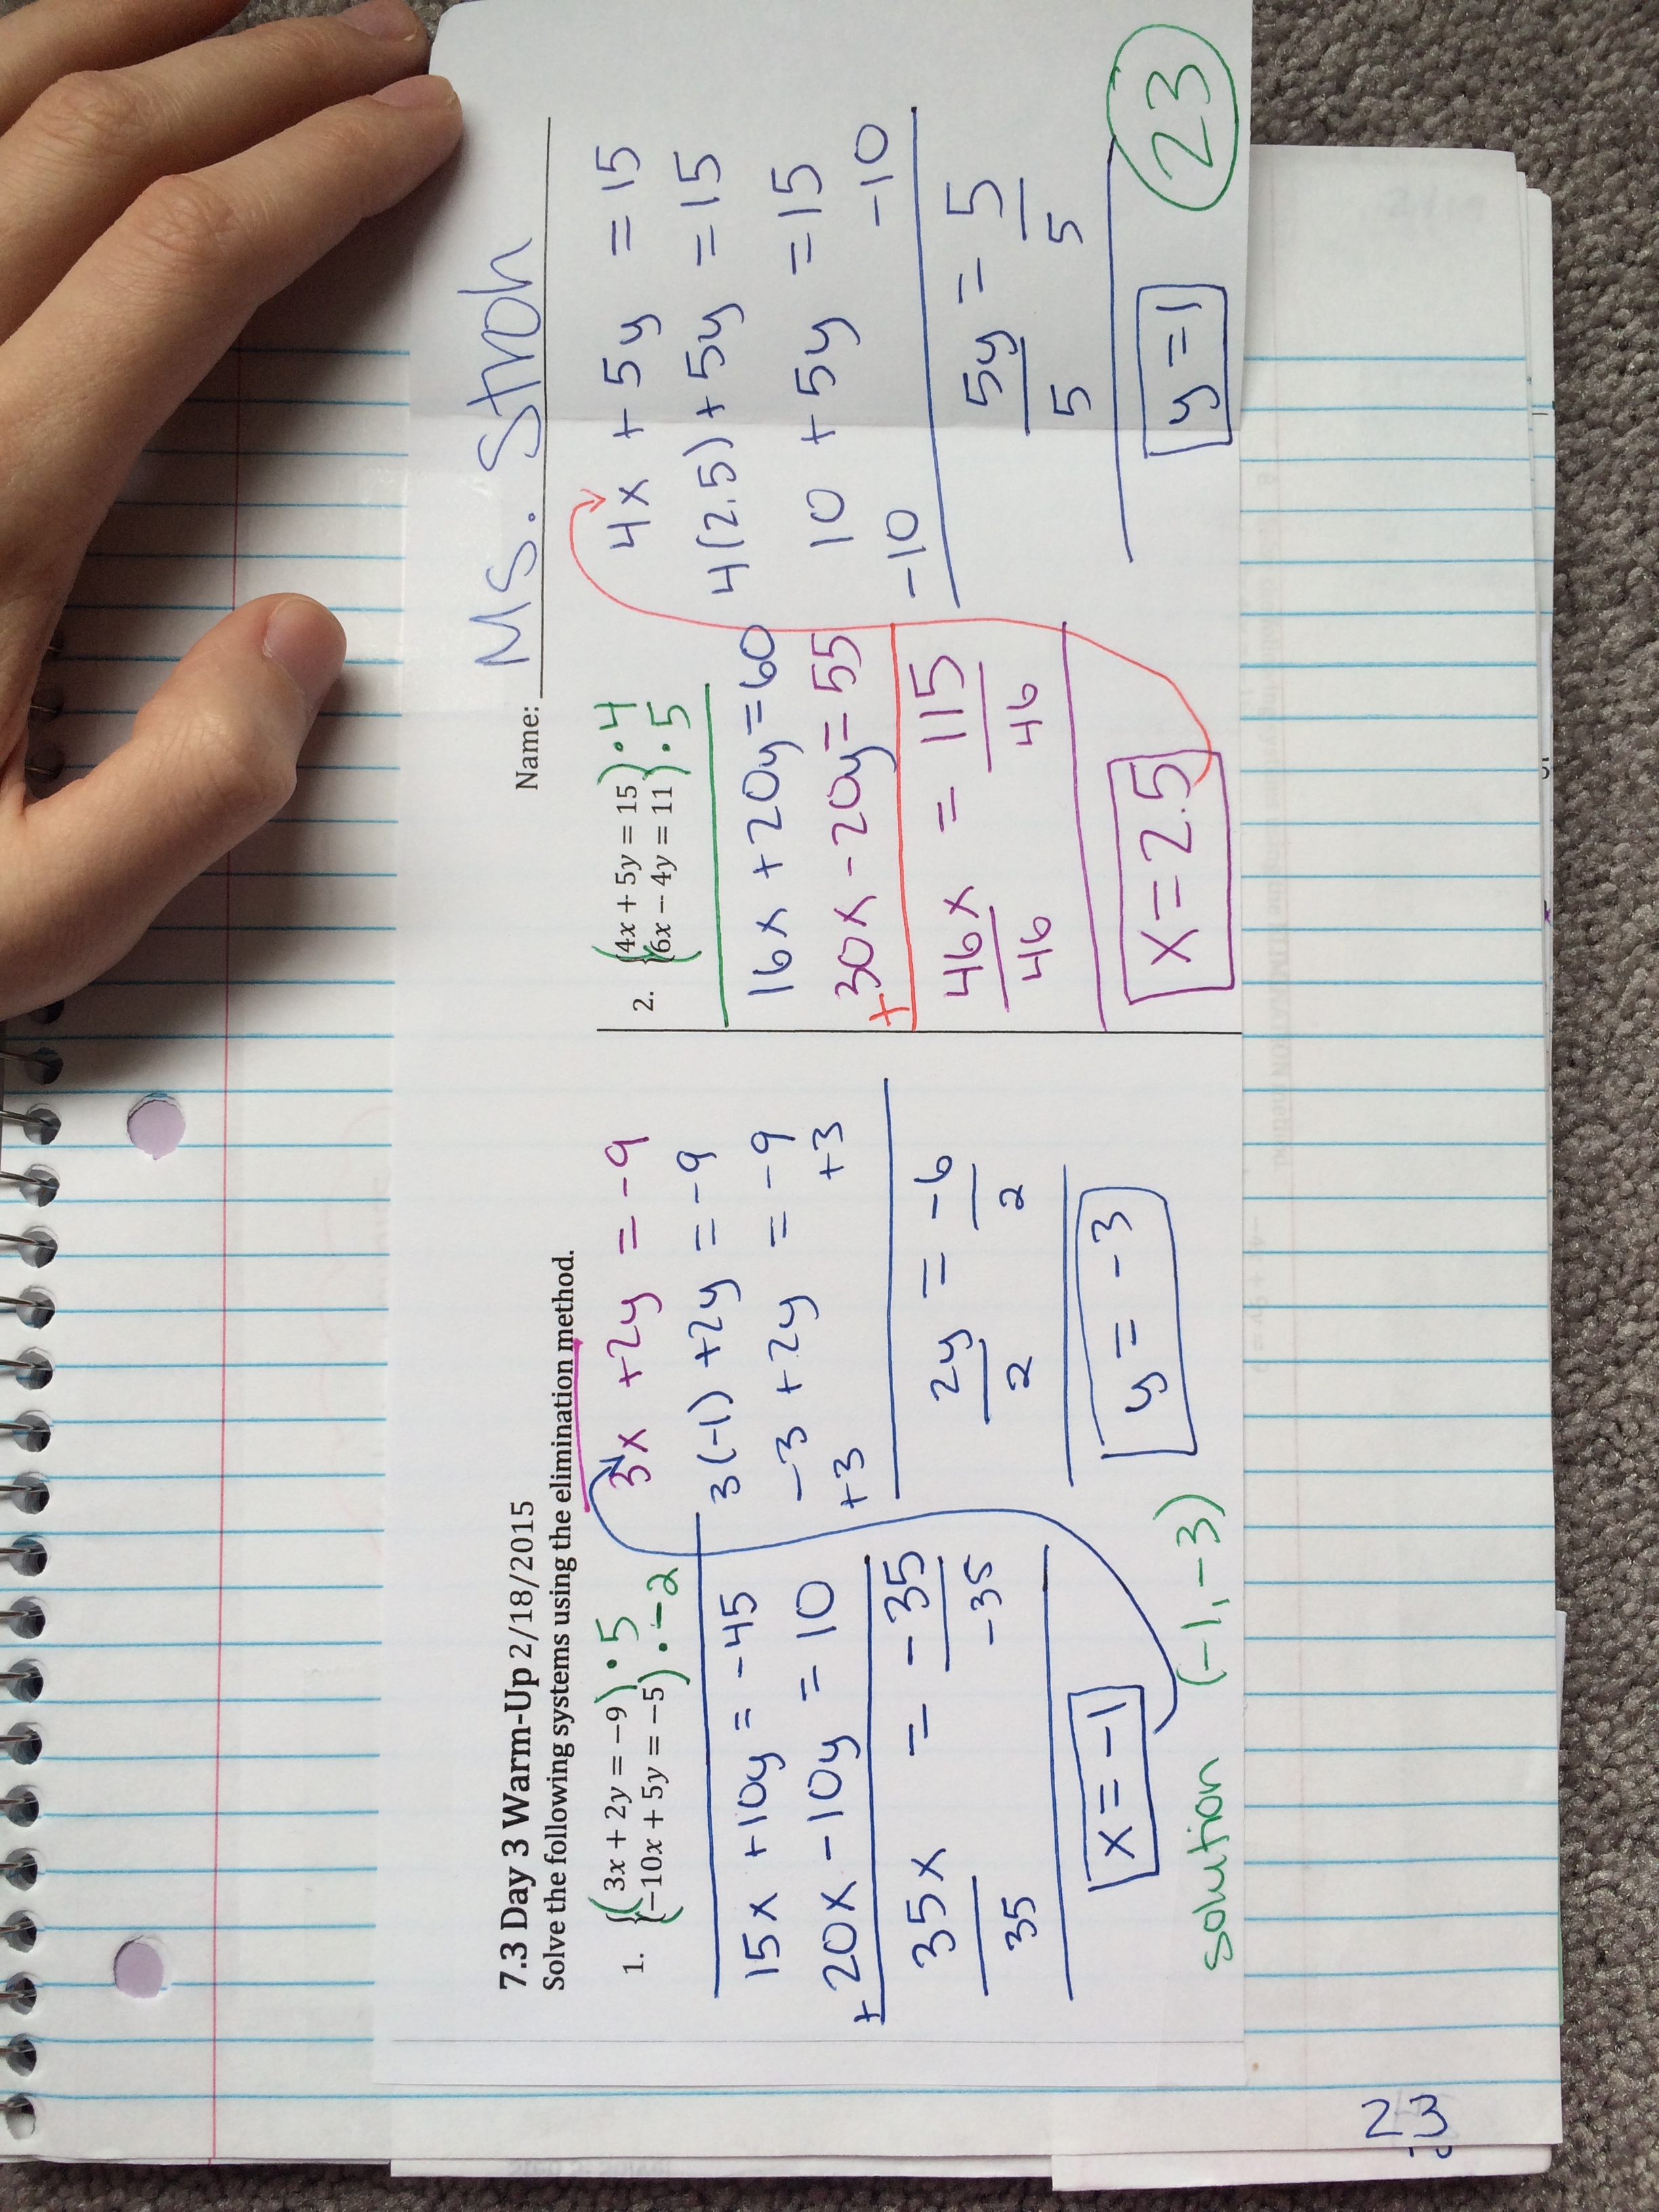 Name: Ms. Stroh
7.3 Day 3 Warm-Up 2/18/2015
Solve the following systems using the elimination method.
1. {(3x + 2y = −9) · 5
(−10x + 5y = −5) · −2
15x + 10y = -45
+ 20x - 10y = 10
35x = -35
35 -35
x = -1
3x + 2y = -9
3(-1) + 2y = -9
-3 + 2y = -9
+3 +3
2y = -6
2 2
y = -3
solution (-1, -3)
2. {(4x + 5y = 15) · 4
(6x − 4y = 11) · 5
16x + 20y = 60
+ 30x - 20y = 55
46x = 115
46 46
x = 2.5
4x + 5y = 15
4(2.5) + 5y = 15
10 + 5y = 15
-10 -10
5y = 5
5 5
y = 1
23
23